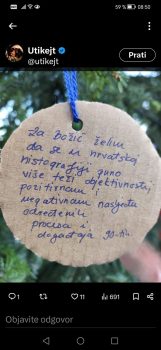 59 % 08:50
Utikejt
@utikejt
Prati
Za Božić želim
da se u hrvatskoj
historiografiji
više teži objektivnosti,
pozitivnom i
negativnom nasljeđu
određenih
procesa i
događaja 90-tih
1
11
691
Objavite odgovor